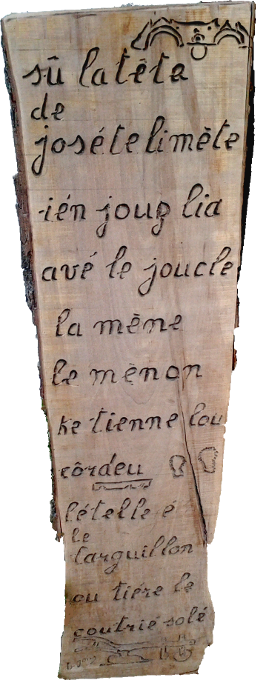 sû la tête
de
joséte limète
ién joug lia
avé le joucle
la mène
le mènon
ke tienne lou
côrdeu
l'ételle é
le
targuillon
ou tiére le
coutrié solé